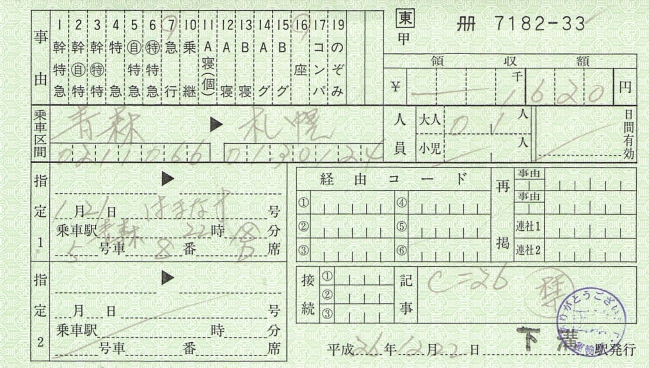 東 甲 冊 7182-33
事由
1 幹特急
2 幹㊕
3 幹特
4 特急
5 自特急
6 ㊕特急
7 急行
10 乗継
11 A寝(個)
12 A寝
13 B寝
14 Aグ
15 Bグ
16 座
17 コンパ
19 のぞみ
領収額
¥ 千 1,620 円
乗車区間 青森 ▶ 札幌
人員 大人 01人
小児 人
日間有効
指定1 ▶
1月21日 はまなす 号
乗車駅 青森 22時 分
5号車 8番 席
指定2 ▶
月 日 号
乗車駅 時 分
号車 番 席
経由コード
① ④
② ⑤
③ ⑥
再掲
事由
事由
連社1
連社2
接続 ① ② ③
記事 C=26
ありがとうございます
平成26年12月22日 下溝駅発行